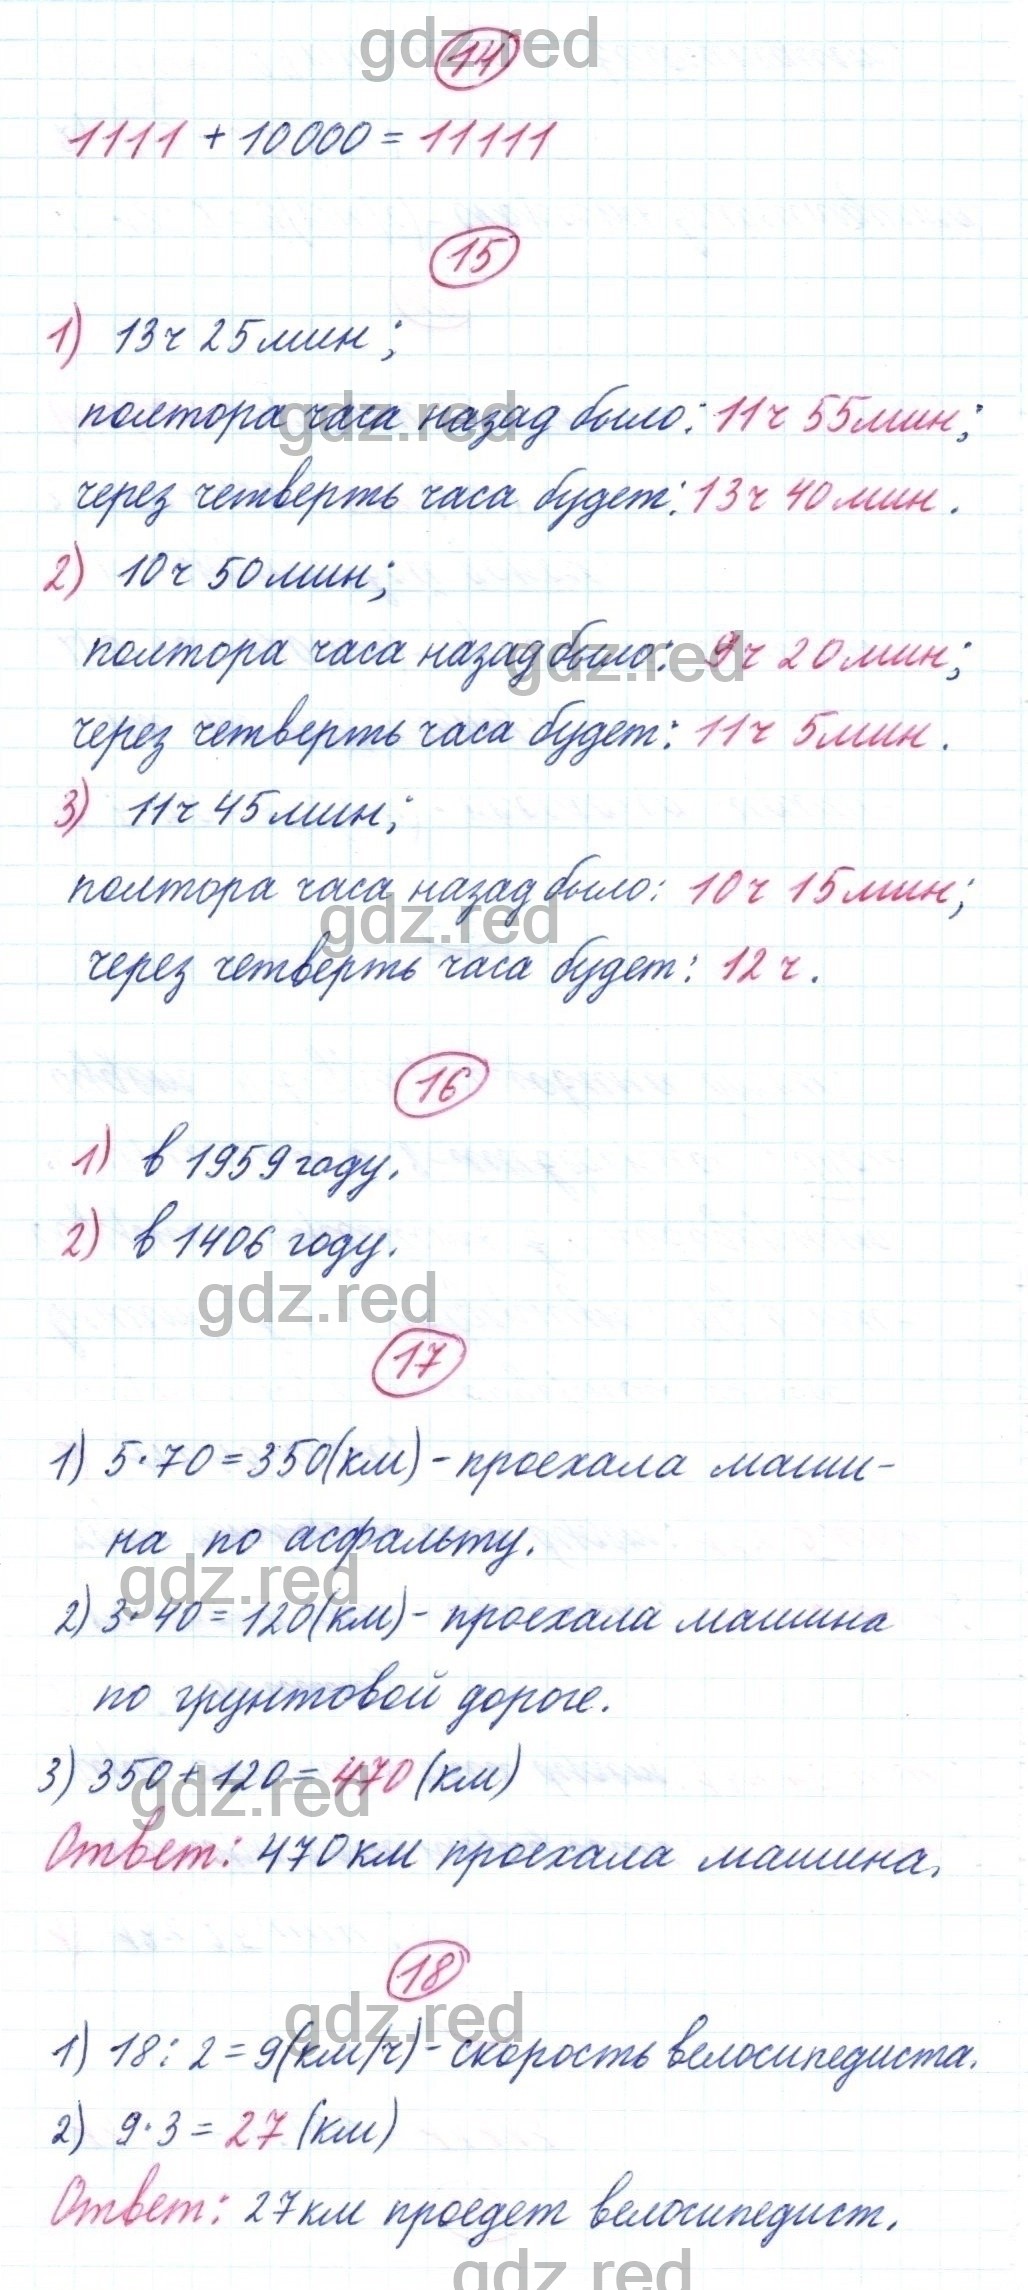 gdz.red
14
1111 + 10000 = 11111
15
1) 13ч 25мин;
gdz.red
полтора часа назад было: 11ч 55мин;
через четверть часа будет: 13ч 40мин.
2) 10ч 50мин;
gdz.red
полтора часа назад было: 9ч 20мин;
через четверть часа будет: 11ч 5мин.
3) 11ч 45мин;
полтора часа назад было: 10ч 15мин;
gdz.red
через четверть часа будет: 12ч.
16
1) в 1959 году.
2) в 1406 году.
gdz.red
17
1) 5·70=350(км)-проехала маши-
на по асфальту.
gdz.red
2) 3·40=120(км)-проехала машина
по грунтовой дороге.
3) 350+120=470(км)
gdz.red
Ответ: 470км проехала машина.
18
gdz.red
1) 18:2=9(км/ч)-скорость велосипедиста.
2) 9·3=27(км)
Ответ: 27км проедет велосипедист.
gdz.red